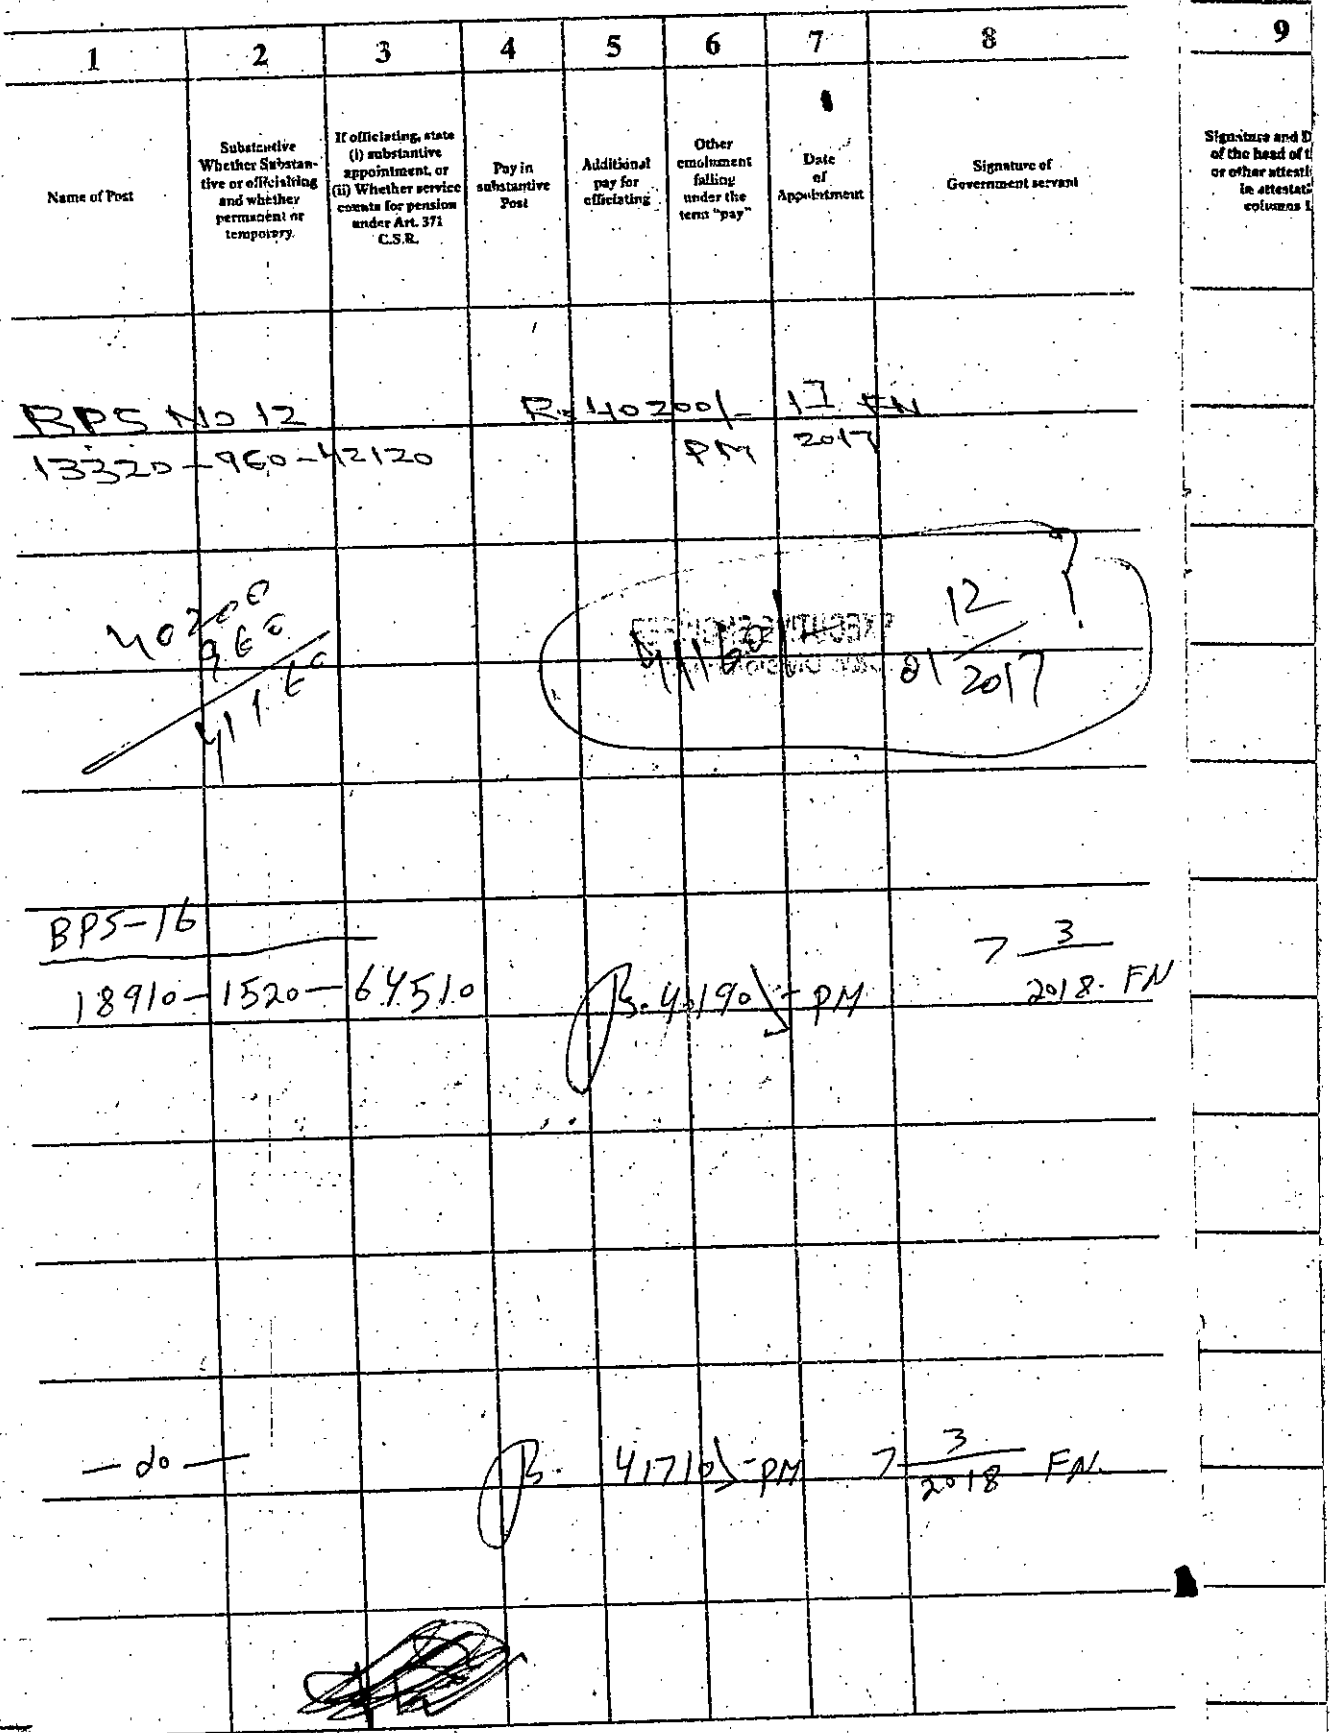 1 2 3 4 5 6 7 8 9
Name of Post
Substantive
Whether Substan-
tive or officiating
and whether
permanent or
temporary.
If officiating, state
(i) substantive
appointment, or
(ii) Whether service
counts for pension
under Art. 371
C.S.R.
Pay in
substantive
Post
Additional
pay for
officiating
Other
emolument
falling
under the
term "pay"
Date
of
Appointment
Signature of
Government servant
Signature and D
of the head of t
or other attesti
in attestati
columns 1
BPS No 12 Rs 40200/- 1 7 FN
13320-960-42120 PM 2017
40200
960
41160
41160/- 01 12
2017
BPS-16
18910-1520-64510 Rs. 40190/- PM 7 3
2018. FN
- do - Rs. 41710/- PM 7 3 FN.
2018